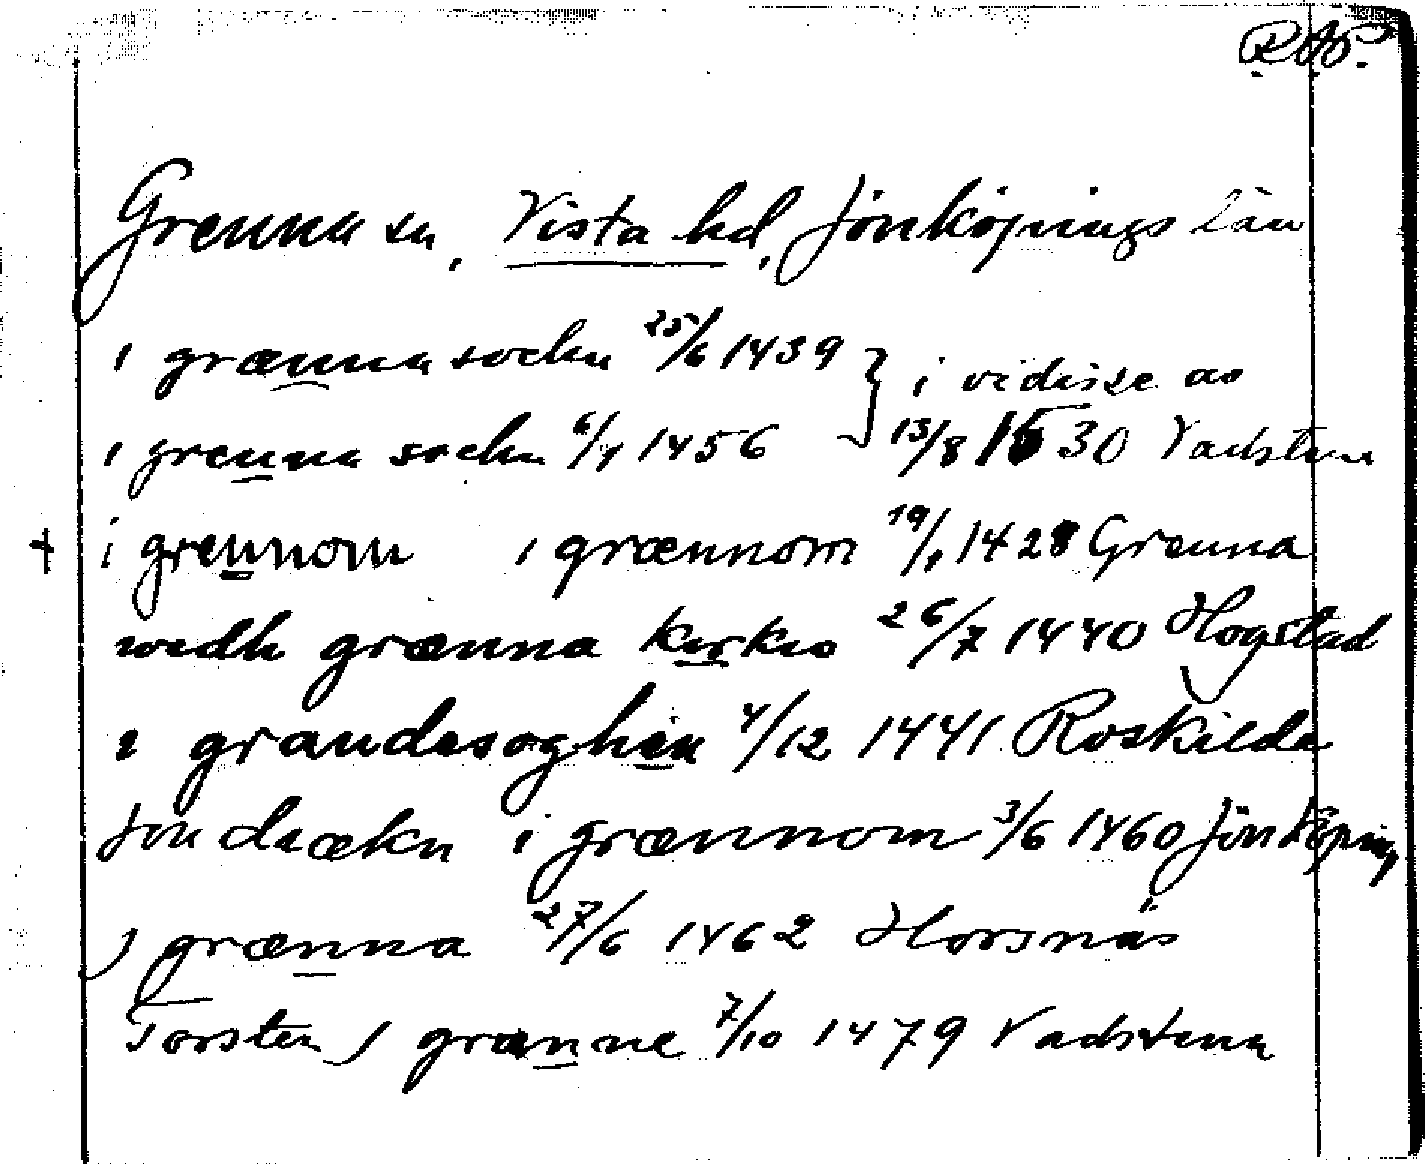 RAP.
Grenna sn, Vista hd, Jönköpings län
i grænna sockn 25/6 1439 } i vidisse av
i grenna sockn 6/4 1456 13/8 1530 Vadstena
+ i grennom i grænnom 19/1 1428 Grenna
wedh grænna kirkio 26/7 1440 Hogstad
i grandesoghen 4/12 1441 Roskilde
Jon diækn i grænnom 3/6 1460 Jönköping
J grænna 27/6 1462 Horsnäs
Torsten J grænne 7/10 1479 Vadstena